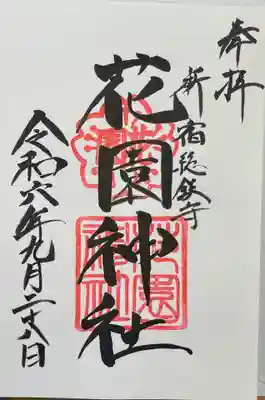 奉拝
新宿総鎮守
花園神社
令和六年九月二十八日